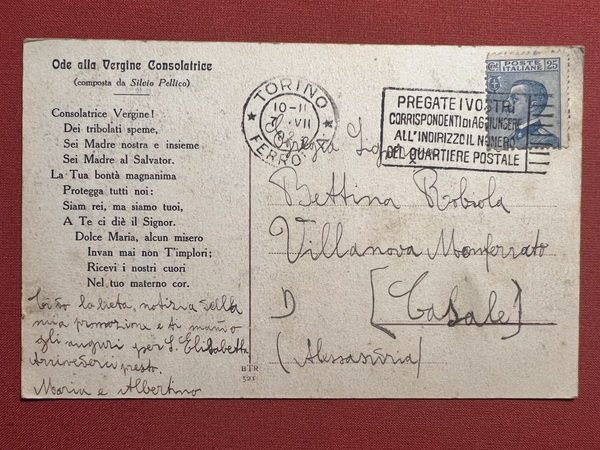 Ode alla Vergine Consolatrice
(composta da Silvio Pellico)
Consolatrice Vergine!
Dei tribolati speme,
Sei Madre nostra e insieme
Sei Madre al Salvator.
La Tua bontà magnanima
Protegga tutti noi:
Siam rei, ma siamo tuoi,
A Te ci diè il Signor.
Dolce Maria, alcun misero
Invan mai non T'implori;
Ricevi i nostri cuori
Nel tuo materno cor.
la lieta notizia della
mia promozione e ti mando
gli auguri per S. Elisabetta
Arrivederci presto.
Maria e Albertino
BTR
521
TORINO
10-11
VII
FERROVIA
PREGATE I VOSTRI
CORRISPONDENTI DI AGGIUNGERE
ALL'INDIRIZZO IL NUMERO
DEL QUARTIERE POSTALE
POSTE
ITALIANE
25
Bettina Robiola
Villanova Monferrato
[Casale]
(Alessandria)